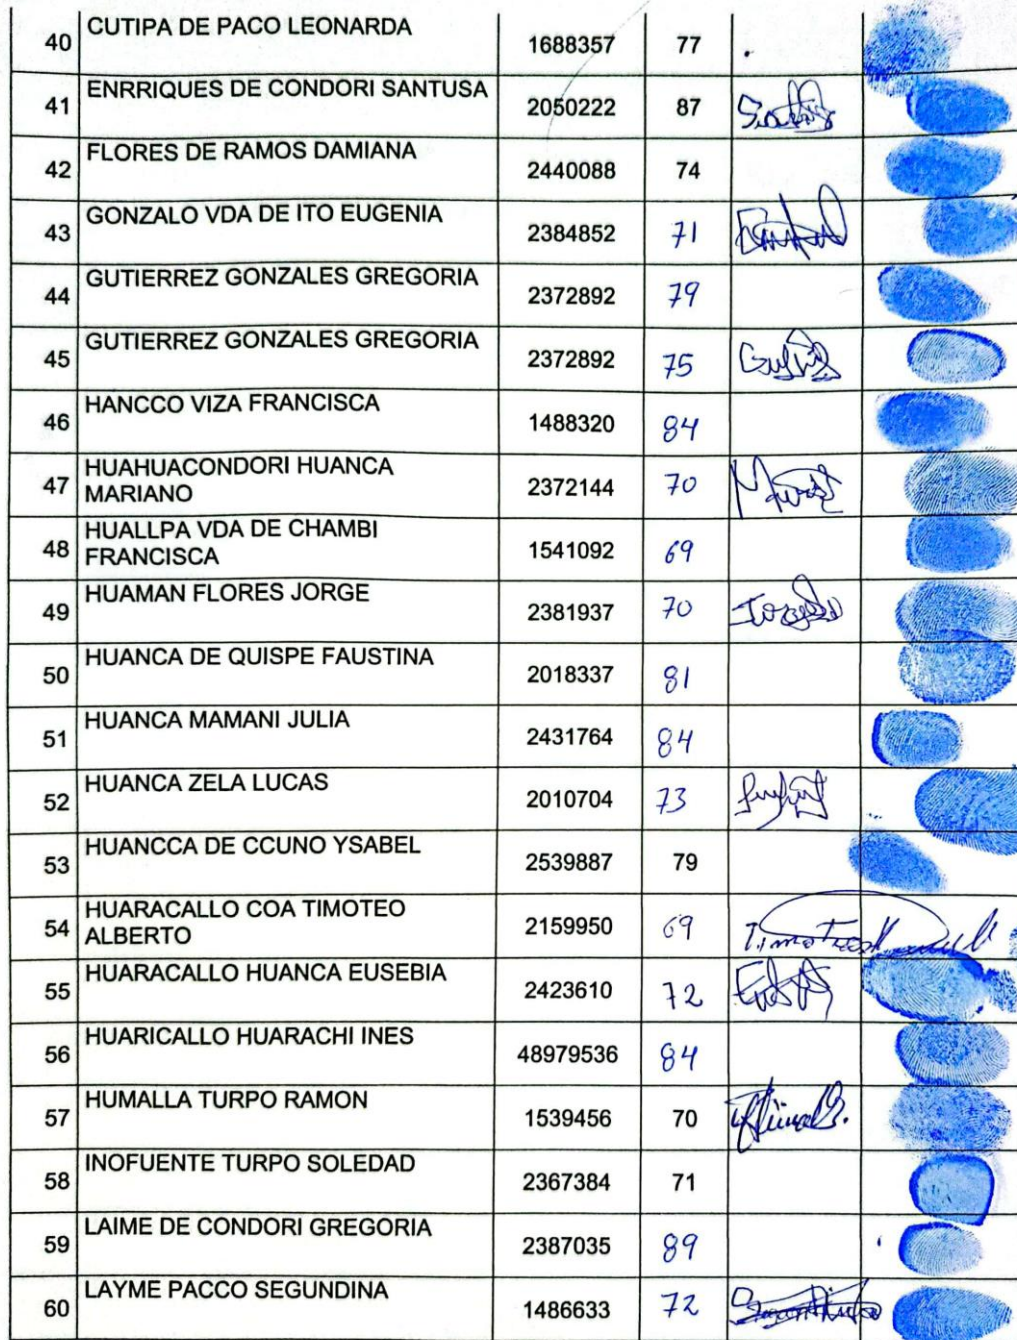 40 CUTIPA DE PACO LEONARDA 1688357 77
41 ENRRIQUES DE CONDORI SANTUSA 2050222 87
42 FLORES DE RAMOS DAMIANA 2440088 74
43 GONZALO VDA DE ITO EUGENIA 2384852 71
44 GUTIERREZ GONZALES GREGORIA 2372892 79
45 GUTIERREZ GONZALES GREGORIA 2372892 75
46 HANCCO VIZA FRANCISCA 1488320 84
47 HUAHUACONDORI HUANCA 2372144 70
MARIANO
48 HUALLPA VDA DE CHAMBI 1541092 69
FRANCISCA
49 HUAMAN FLORES JORGE 2381937 70
50 HUANCA DE QUISPE FAUSTINA 2018337 81
51 HUANCA MAMANI JULIA 2431764 84
52 HUANCA ZELA LUCAS 2010704 73
53 HUANCCA DE CCUNO YSABEL 2539887 79
54 HUARACALLO COA TIMOTEO 2159950 69
ALBERTO
55 HUARACALLO HUANCA EUSEBIA 2423610 72
56 HUARICALLO HUARACHI INES 48979536 84
57 HUMALLA TURPO RAMON 1539456 70
58 INOFUENTE TURPO SOLEDAD 2367384 71
59 LAIME DE CONDORI GREGORIA 2387035 89
60 LAYME PACCO SEGUNDINA 1486633 72